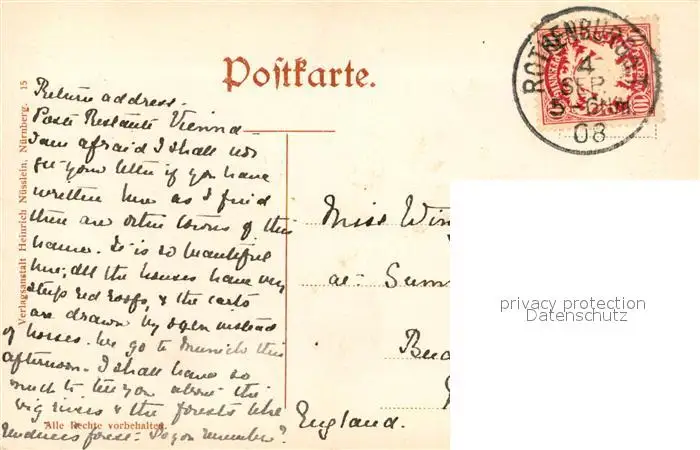 Postkarte.
ROTHENBURG
4
SEP.
5-6NM.
08
Verlagsanstalt Heinrich Nüsslein, Nürnberg. 15
Return address.
Poste Restante Vienna
I am afraid I shall not
get your letter if you have
written here as I find
there are other towns of this
name. It is so beautiful
here; all the houses have very
steep red roofs, & the carts
are drawn by oxen instead
of horses. We go to Munich this
afternoon. I shall have so
much to tell you about the
big rivers & the forests like
forest. Do you remember?
Alle Rechte vorbehalten.
Miss Win
at Sum
England.
privacy protection
Datenschutz